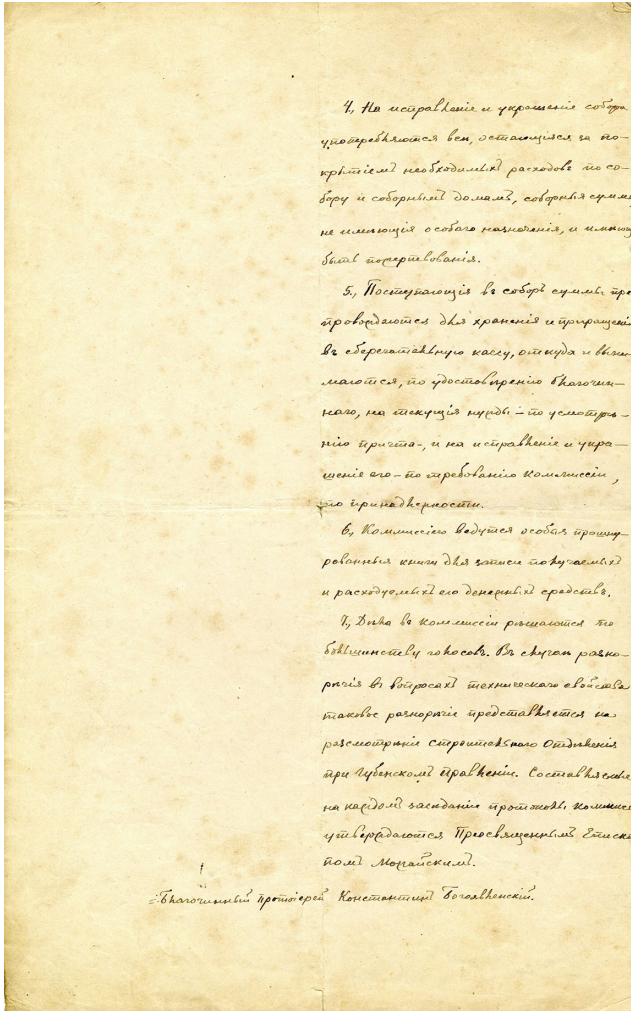 4., На исправленіе и украшеніе собора
употребляются всѣ, остающіяся за по-
крытіемъ необходимыхъ расходовъ по со-
бору и соборнымъ домамъ, соборныя суммы
не имѣющія особаго назначенія, и имѣющ
быть пожертвованія.
5., Поступающія въ соборъ суммы пре
провождаются для храненія и приращенія
въ сберегательную кассу, откуда и выни-
маются, по удостовѣренію благочин-
наго, на текущія нужды – по усмотрѣ-
нію причта –, и на исправленіе и укра-
шеніе его – по требованію Коммиссіи,
по принадлежности.
6., Коммиссіею ведутся особыя прошну-
рованныя книги для записи получаемыхъ
и расходуемыхъ ею денежныхъ средствъ.
7., Дѣла въ Коммиссіи рѣшаются по
большинству голосовъ. Въ случаѣ разно-
рѣчія въ вопросахъ техническаго свойства
таковое разнорѣчіе представляется на
разсмотрѣніе Строительнаго Отдѣленія
при Губенскомъ Правленіи. Составляемые
на каждомъ засѣданіи протоколы Коммисс
утверждаются Преосвященнымъ Еписко
помъ Можайскимъ.
Благочинный Протоіерей Константинъ Богоявленскій.